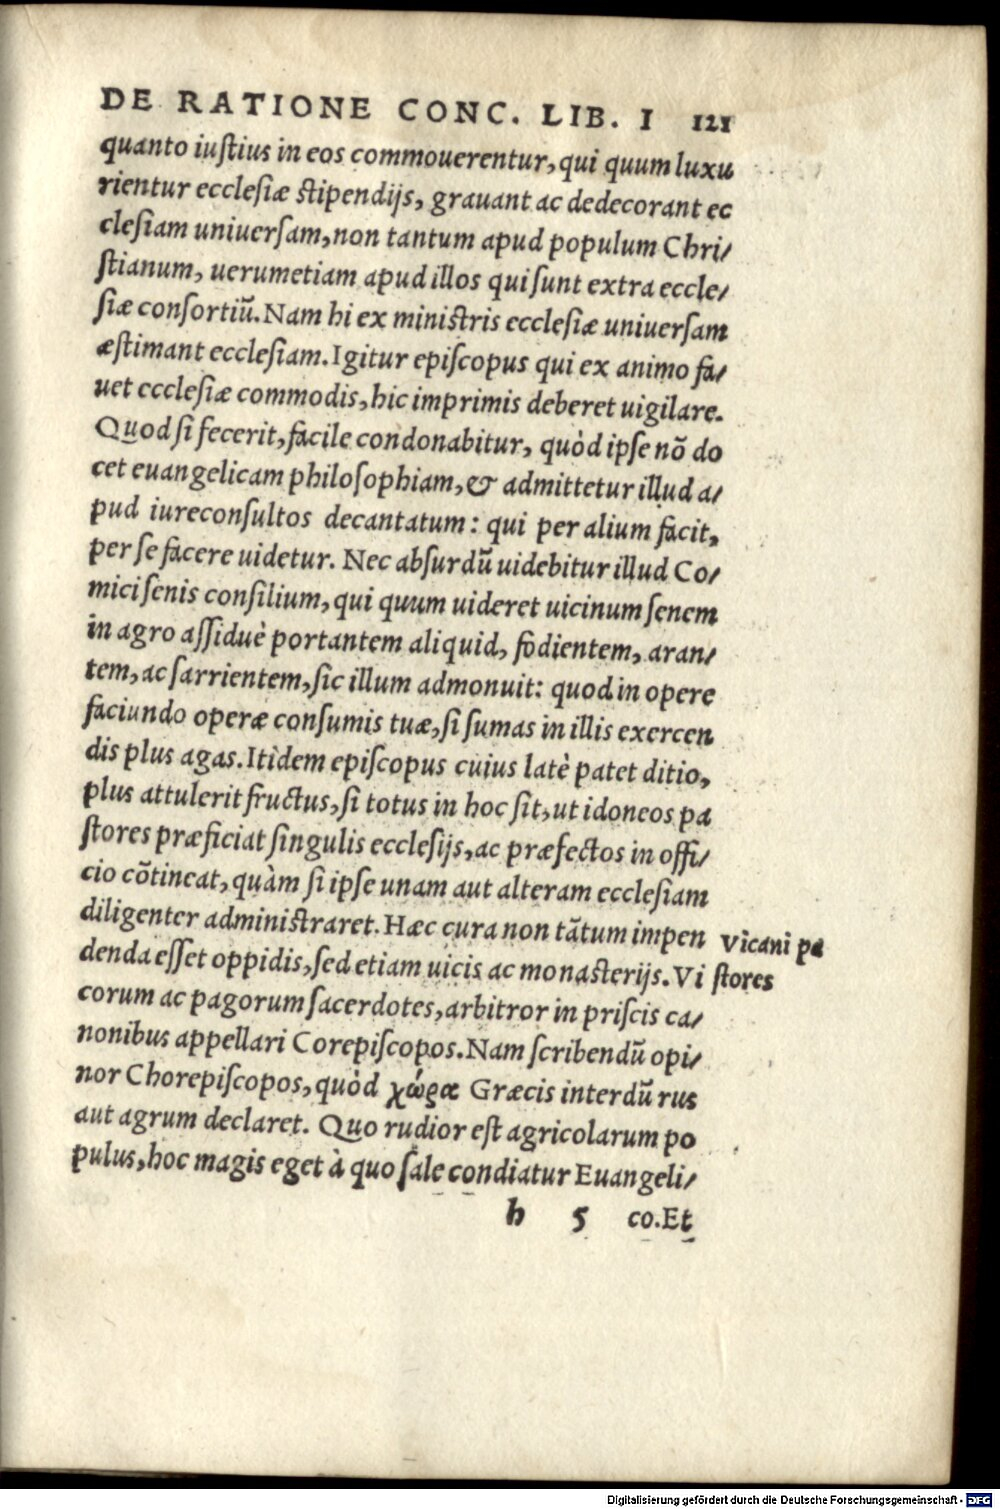 DE RATIONE CONC. LIB. I 121
quanto iuſtius in eos commouerentur, qui quum luxu
rientur eccleſiæ ſtipendijs, grauant ac dedecorant ec
cleſiam uniuerſam, non tantum apud populum Chri/
ſtianum, uerumetiam apud illos qui ſunt extra eccle/
ſiæ conſortiũ. Nam hi ex miniſtris eccleſiæ uniuerſam
æſtimant eccleſiam. Igitur epiſcopus qui ex animo fa/
uet eccleſiæ commodis, hic imprimis deberet uigilare.
Quod ſi fecerit, facile condonabitur, quòd ipſe nõ do
cet euangelicam philoſophiam, & admittetur illud a/
pud iureconſultos decantatum: qui per alium facit,
per ſe facere uidetur. Nec abſurdũ uidebitur illud Co/
mici ſenis conſilium, qui quum uideret uicinum ſenem
in agro aſſiduè portantem aliquid, fodientem, aran/
tem, ac ſarrientem, ſic illum admonuit: quod in opere
faciundo operæ conſumis tuæ, ſi ſumas in illis exercen
dis plus agas. Itìdem epiſcopus cuius latè patet ditio,
plus attulerit fructus, ſi totus in hoc ſit, ut idoneos pa
ſtores præficiat ſingulis eccleſijs, ac præfectos in offi/
cio cõtineat, quàm ſi ipſe unam aut alteram eccleſiam
diligenter adminiſtraret. Hæc cura non tãtum impen
denda eſſet oppidis, ſed etiam uicis ac monaſterijs. Vi
Vicani pa
ſtores
corum ac pagorum ſacerdotes, arbitror in priſcis ca/
nonibus appellari Corepiſcopos. Nam ſcribendũ opi/
nor Chorepiſcopos, quòd χώρα Græcis interdũ rus
aut agrum declaret. Quo rudior eſt agricolarum po
pulus, hoc magis eget à quo ſale condiatur Euangeli/
h 5 co. Et
Digitalisierung gefördert durch die Deutsche Forschungsgemeinschaft - DFG